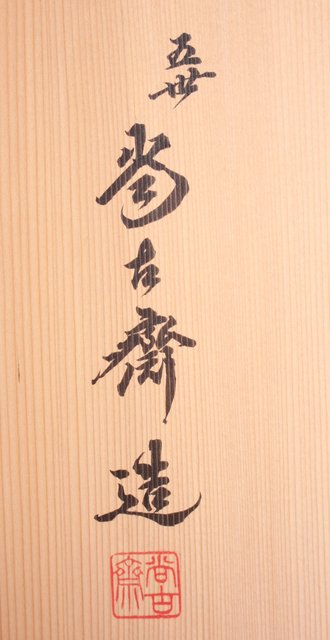 五世
尚古齋
造
尚古齋